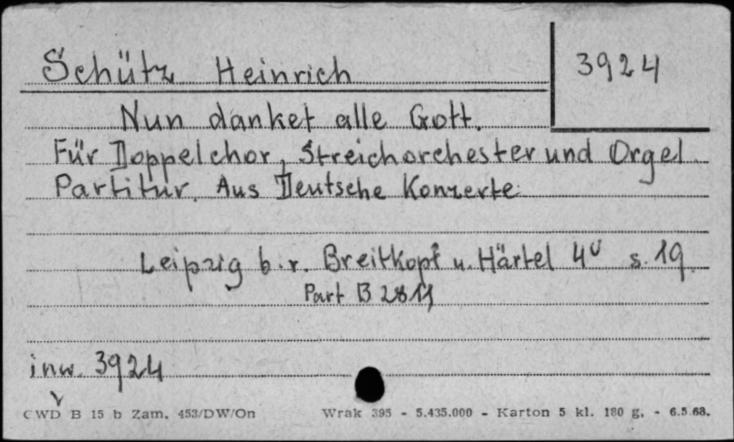 Schütz Heinrich
3924
Nun danket alle Gott.
Für Doppelchor, Streichorchester und Orgel
Partitur. Aus Deutsche Konzerte
Leipzig b.r. Breitkopf u. Härtel 4° s. 19
Part B
inw. 3924
CWD B 15 b Zam. 453/DW/On Wrak 395 - 5.435.000 - Karton 5 kl. 180 g. - 6.5.68.